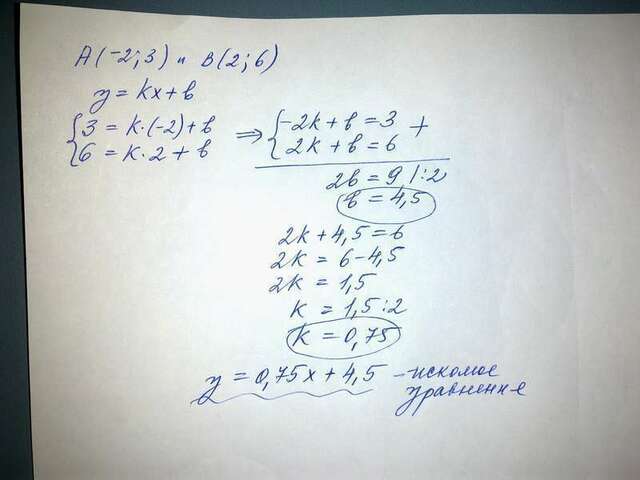 А(-2;3) и В(2;6)
y = kx + в
{3 = k·(-2)+в ⇒ {-2k + в = 3 +
{6 = k·2 + в {2k + в = 6
2в = 9 | :2
в = 4,5
2k + 4,5 = 6
2k = 6 - 4,5
2k = 1,5
k = 1,5 : 2
k = 0,75
y = 0,75x + 4,5 - искомое
уравнение